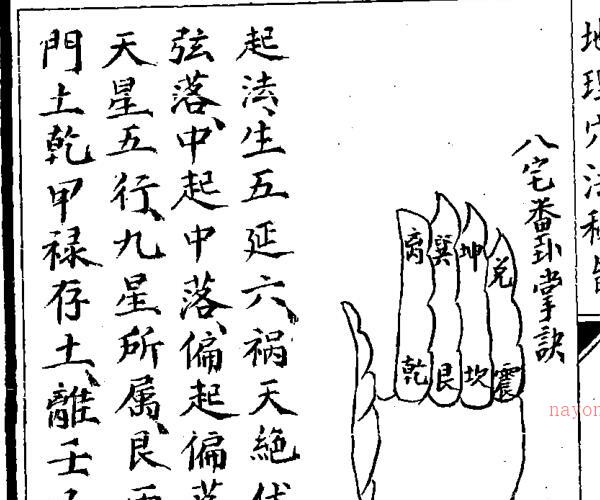 地理穴法秘旨
八宅番卦掌訣
兌 坤 巽 离
震 坎 艮 乾
起法、生五延六、禍天絕伏
弦落、中起中落、偏起偏落
天星五行、九星所属、艮
門土乾甲禄存土、離壬
nayon